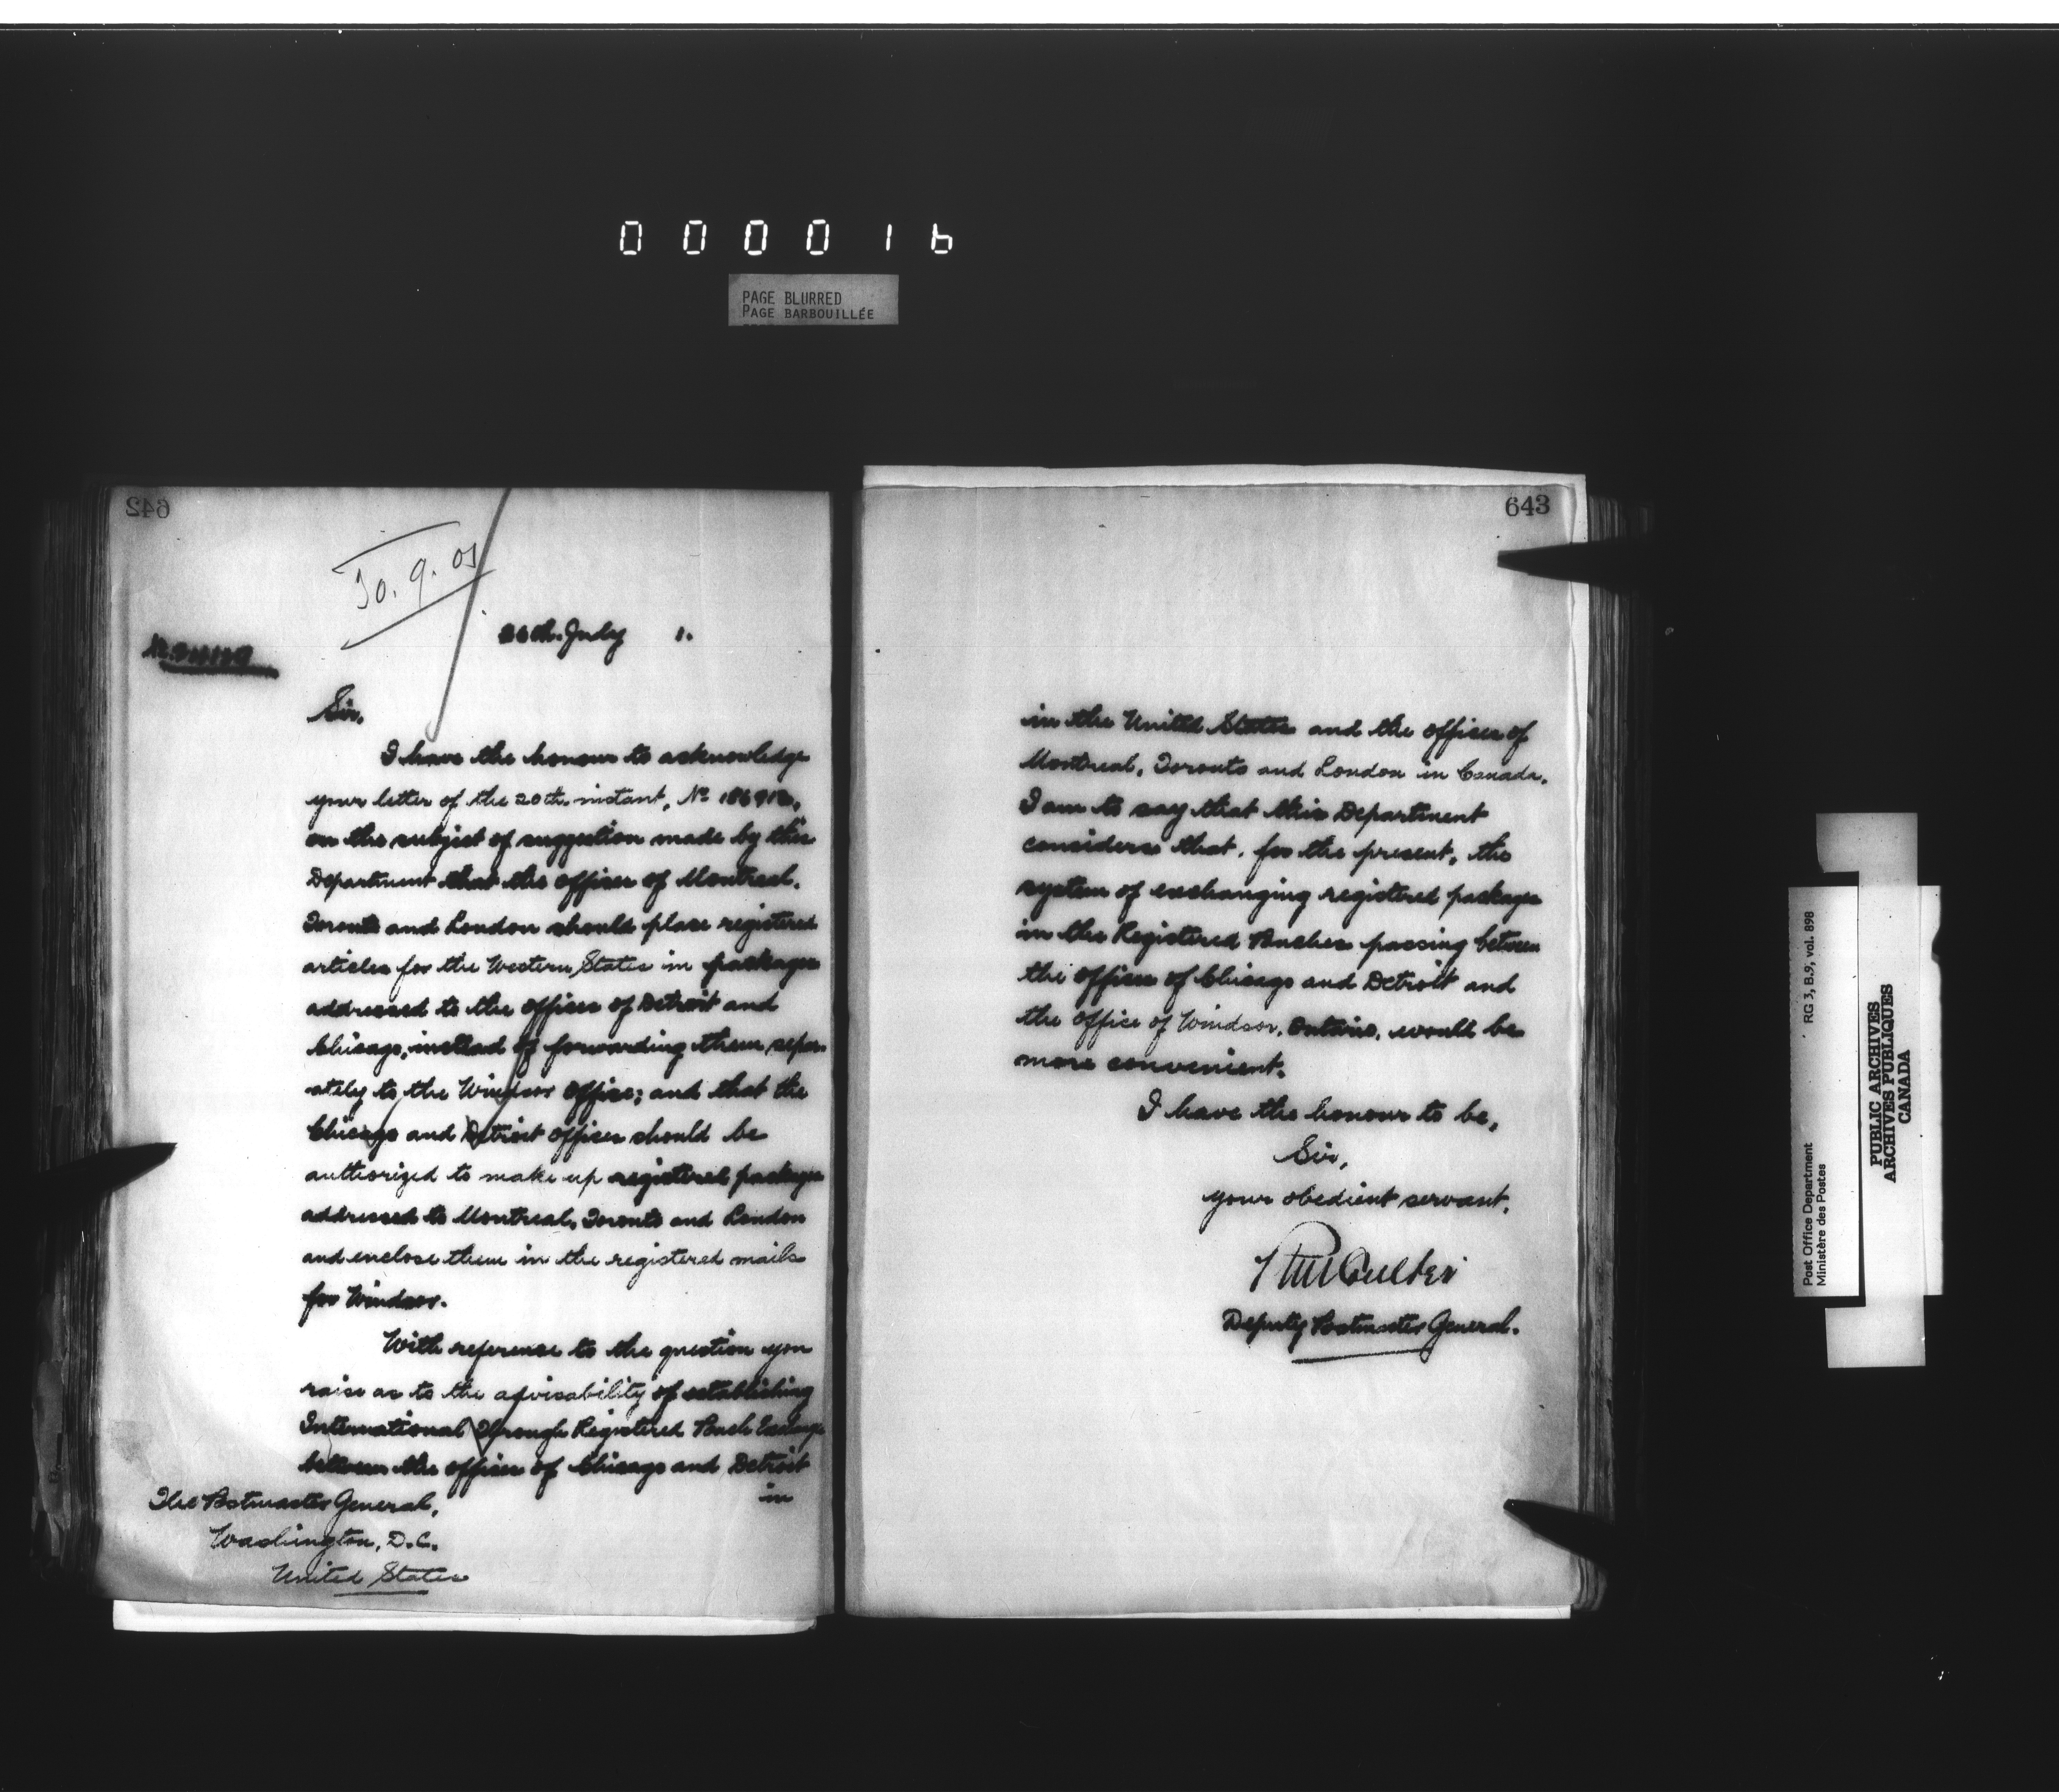 00001b
PAGE BLURRED
PAGE BARBOUILLÉE
642
30.9.01
26th July 1.
Sir,
I have the honour to acknowledge
your letter of the 20th instant, No
on the subject of suggestion made by this
Department that the offices of Montreal,
Toronto and London should place registered
articles for the Western States in packages
addressed to the offices of Detroit and
Chicago, instead of forwarding them sepa-
rately to the Windsor office; and that the
Chicago and Detroit offices should be
authorized to make up registered packages
addressed to Montreal, Toronto and London
and enclose them in the registered mails
for Windsor.
With reference to the question you
raise as to the advisability of establishing
International Through Registered Pouch Exchange
between the offices of Chicago and Detroit
in
The Postmaster General,
Washington, D.C.
United States
643
in the United States and the offices of
Montreal, Toronto and London in Canada,
I am to say that this Department
considers that, for the present, the
system of exchanging registered packages
in the Registered Pouches passing between
the offices of Chicago and Detroit and
the office of Windsor, Ontario, would be
more convenient.
I have the honour to be,
Sir,
your obedient servant,
RM Coulter
Deputy Postmaster General.
Post Office Department
Ministère des Postes
RG 3, B.9, vol. 898
PUBLIC ARCHIVES
ARCHIVES PUBLIQUES
CANADA